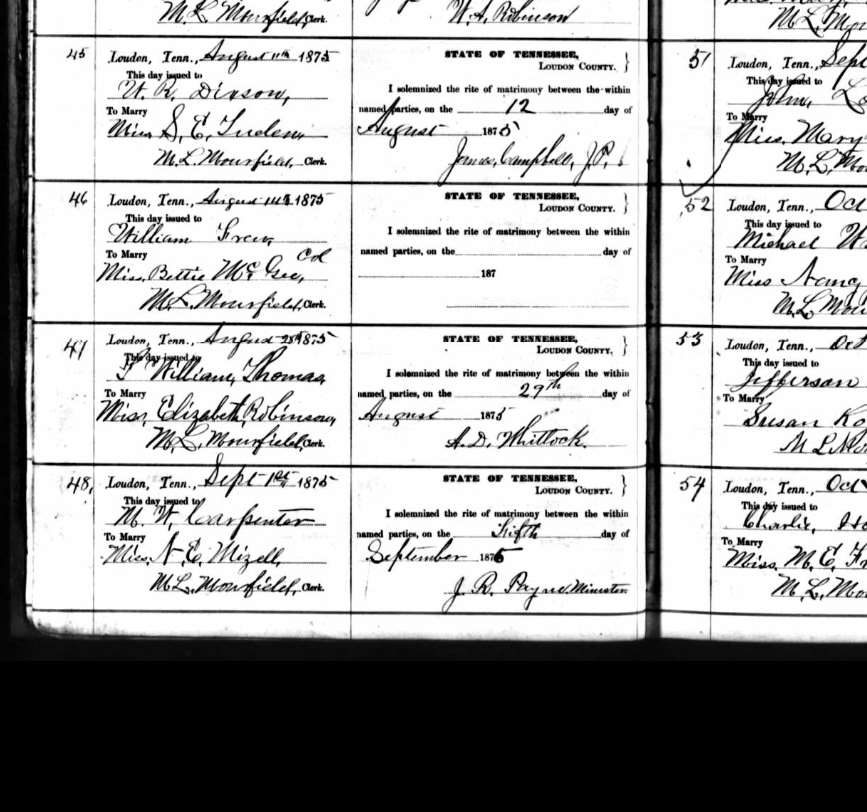 M. L. Mourfield, Clerk.
W. A. Robinson
45
Loudon, Tenn., August 11th 1875
This day issued to
W. R.
To Marry
Miss S. E.
M. L. Mourfield, Clerk.
STATE OF TENNESSEE,
LOUDON COUNTY.
I solemnized the rite of matrimony between the within
named parties, on the 12 day of
August 1875
James Campbell, J.P.
46
Loudon, Tenn., August 14th 1875
This day issued to
William
To Marry Col
Miss Bettie McGee,
M. L. Mourfield, Clerk.
STATE OF TENNESSEE,
LOUDON COUNTY.
I solemnized the rite of matrimony between the within
named parties, on the day of
187
47
Loudon, Tenn., August 28th 1875
This day issued to
William Thomas
To Marry
Miss Elizabeth Robinson,
M. L. Mourfield, Clerk.
STATE OF TENNESSEE,
LOUDON COUNTY.
I solemnized the rite of matrimony between the within
named parties, on the 29th day of
August 1875
A. D. Whitlock
48,
Loudon, Tenn., Sept 1st 1875
This day issued to
M. W. Carpenter
To Marry
Miss N. E. Mizell,
M. L. Mourfield, Clerk.
STATE OF TENNESSEE,
LOUDON COUNTY.
I solemnized the rite of matrimony between the within
named parties, on the Fifth day of
September 1875
J. R. Payne Minister
51
Loudon, Tenn., Sept
This day issued to
John
To Marry
Miss Mary
M. L. Mou
52
Loudon, Tenn., Oct
This day issued to
Michael
To Marry
Miss Nancy
M. L. Mou
53
Loudon, Tenn., Oct
This day issued to
Jefferson
To Marry
Susan
M L Mou
54
Loudon, Tenn., Oct
This day issued to
Charlie
To Marry
Miss M. E. Fr
M. L. Mou